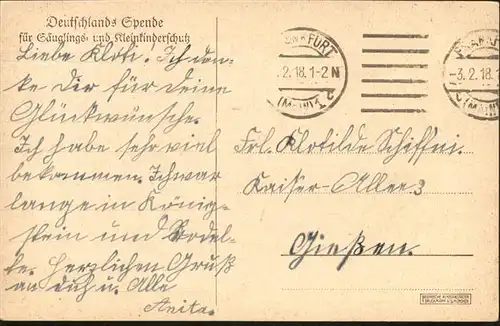 Deutschlands Spende
für Säuglings- und Kleinkinderschutz
Liebe Kloti! Ich dan-
ke Dir für deine
Glückwünsche.
Ich habe sehr viel
bekommen. Ich war
lange in König-
stein und rodel-
te. Herzlichen Gruß
an dich u. Alle
Anita.
FRANKFURT
.2.18.1-2N
(MAIN)1
c
FRANKFURT
-3.2.18.1
(MAIN)
c
Frl. Klotilde Schiffni.
Kaiser-Allee 3
Gießen.